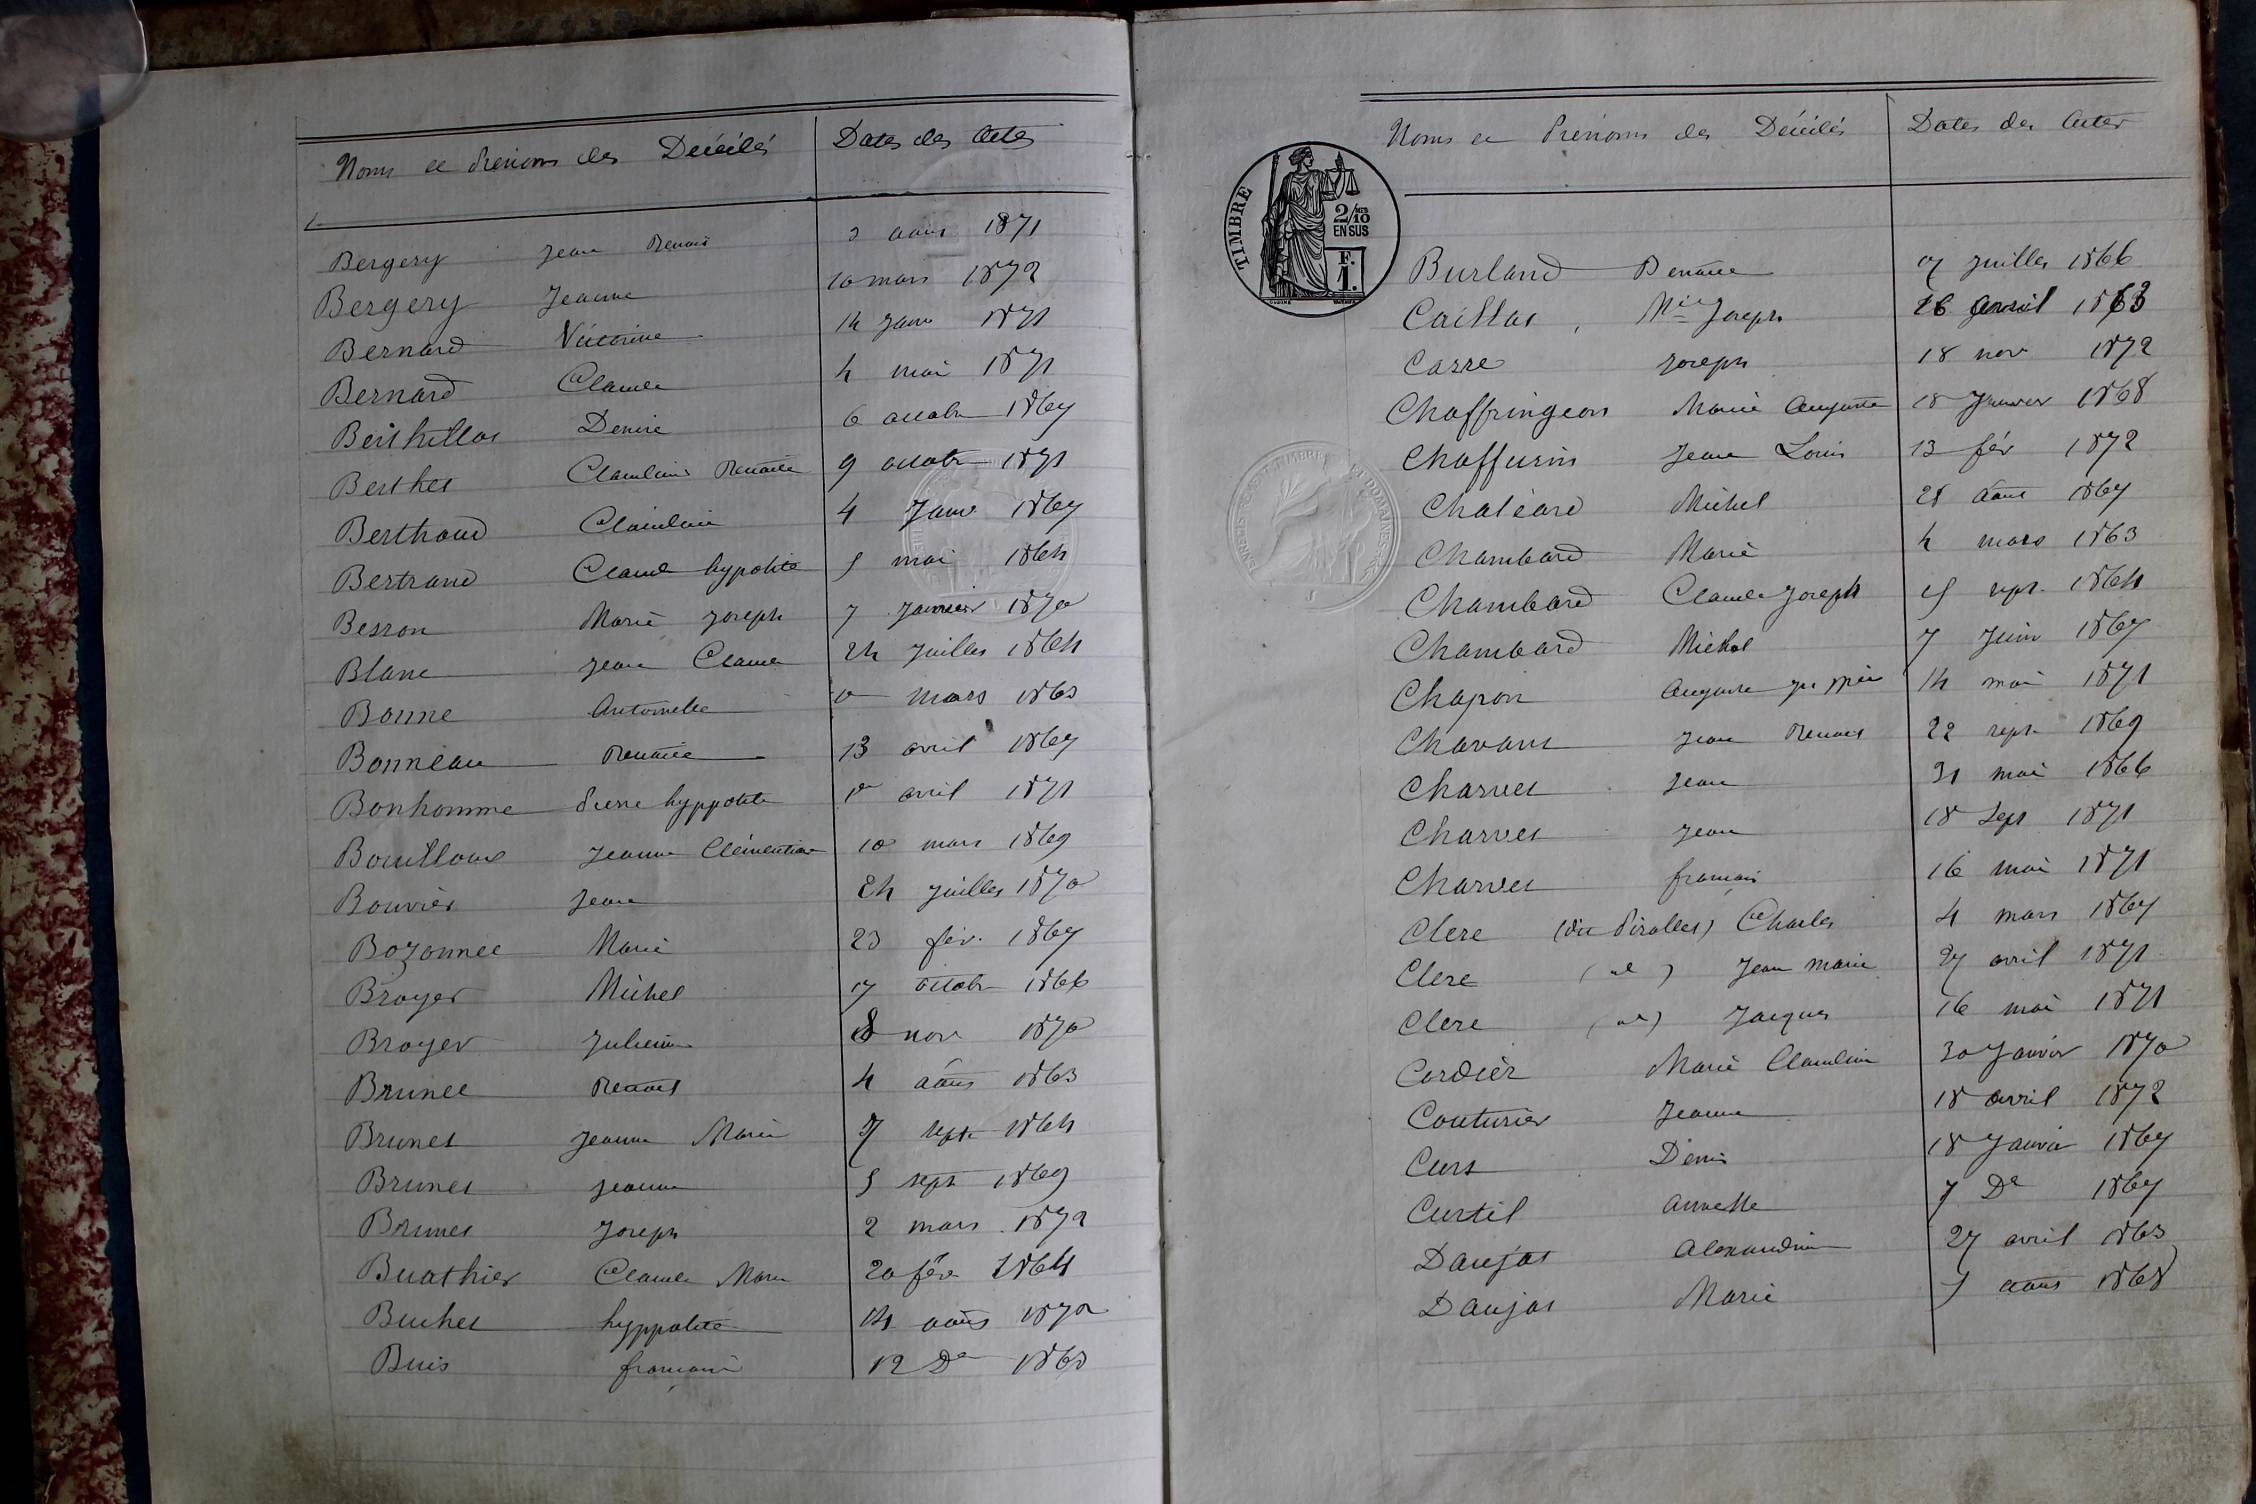 Noms et Prénoms des Décédés Dates des Actes
Bergery Jean Benoit 3 août 1871
Bergery Jeanne 10 mars 1872
Bernard Victorine 14 janv 1871
Bernard Claude 4 mai 1871
Berthillot Denise 6 octobr 1867
Berthet Claudine Benoite 9 octobr 1871
Berthoud Claudine 4 Janv 1867
Bertrand Claude hypolite 5 mai 1864
Besson Marie Joseph 7 Janvier 1870
Blanc Jean Claude 24 juillet 1864
Bonne Antoinette 1er mars 1863
Bonneau Benoite 13 avril 1867
Bonhomme Pierre hyppolite 1er avril 1871
Bouilloux Jeanne Clémentine 10 mars 1869
Bouvier Jean 24 juillet 1870
Bozonnet Marie 23 fév. 1867
Broyer Michel 17 octobr 1866
Broyer Julienne 8 nov 1870
Brunet Benoit 4 août 1863
Brunet Jeanne Marie 7 sept 1864
Brunet Jeanne 5 sept 1869
Brunet Joseph 2 mars 1872
Buathier Claude Marie 20 fév 1864
Buchet hyppolite 14 août 1872
Buis françois 12 De 1863
Noms et Prénoms des Décédés Dates des Actes
TIMBRE
2/10 MES
EN SUS
F.
1.
Burland Benoite 17 juillet 1866
Caillat Mie Joseph 26 avril 1863
Carre Joseph 18 nov 1872
Chaffringeon Marie Augustte 18 Janvier 1868
Chaffurin Jean Louis 13 fév 1872
Chaléard Michel 28 août 1867
Chambard Marie 4 mars 1863
Chambard Claude Joseph 15 sept. 1864
Chambard Michel 7 Juin 1867
Chapon Auguste 14 mai 1871
Chavant Jean Benoit 22 sept. 1869
Charvet Jean 31 mai 1866
Charvet Jean 18 Sept 1871
Charvet françois 16 mai 1871
Clerc (dit Pirollet) Charles 4 mars 1867
Clerc (id) Jean marie 27 avril 1871
Clerc (id) Jacques 16 mai 1871
Cordier Marie Claudine 30 Janvier 1870
Couturier Jeanne 18 avril 1872
Curt Denis 18 Janvier 1867
Curtil Annette 7 De 1867
Daujat Alexandrine 27 avril 1863
Daujat Marie 5 août 1868